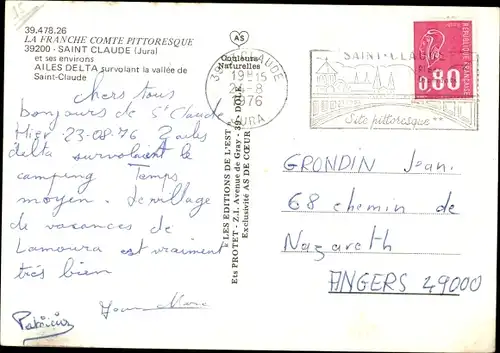 39.478.26
LA FRANCHE COMTE PITTORESQUE
39200 - SAINT CLAUDE (Jura)
et ses environs
AILES DELTA survolant la vallée de
Saint-Claude
Chers tous
bonjours de St Claude
Hier 23-08-76 2 ailes
delta survolaient le
camping Temps
moyen. Le village
de vacances de
Lamoura est vraiment
très bien
Patricia Jean Marc
AS
Couleurs
Naturelles
"LES EDITIONS DE L'EST"
Ets PROTET - Z.I. Avenue de Gray - 39 - DOLE
Exclusivité AS DE CŒUR
ST CLAUDE
19H15
24-8
1976
JURA
SAINT-CLAUDE
Site pittoresque**
REPUBLIQUE FRANÇAISE
0,80
GRONDIN Jean.
68 chemin de
Nazareth
ANGERS 49000